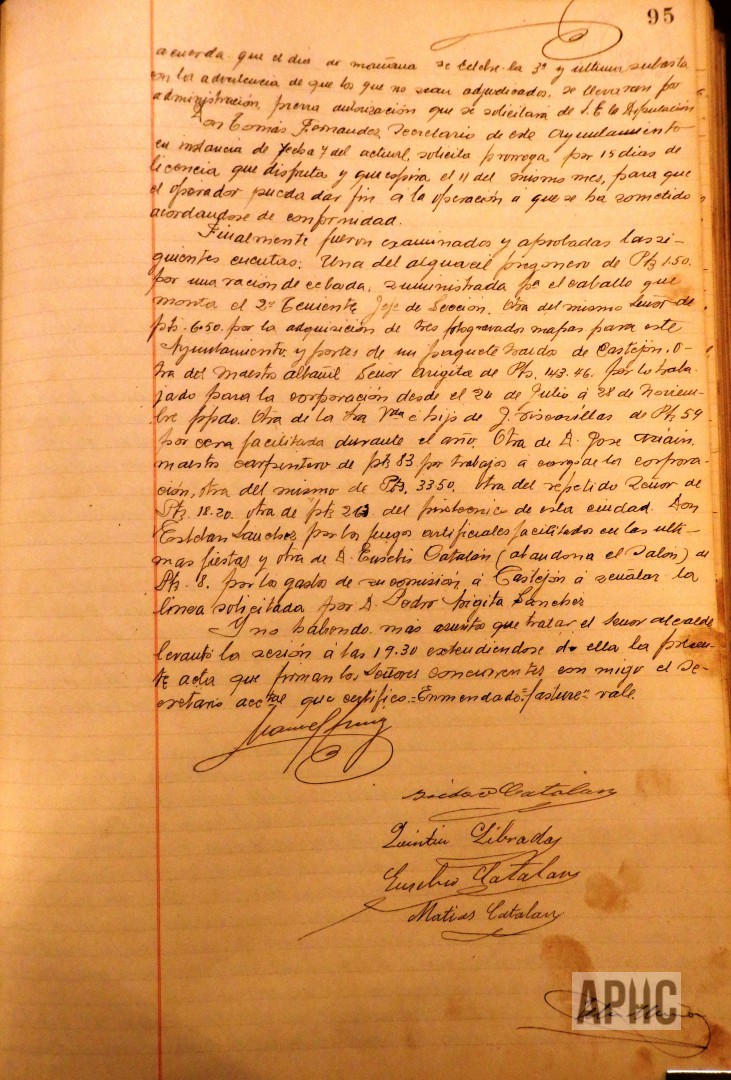 95
acuerda que el dia de mañana se celebre la 3ª y ultima subasta
con la advertencia de que los que no sean adjudicados, se llevaran por
administración, previa autorización que se solicitará de S. E. la Diputación
Don Tomás Fernandez, Secretario de este Ayuntamiento
en instancia de fecha 7 del actual, solicita prorroga por 15 dias de
licencia que disfruta y que espira el 11 del mismo mes, para que
el operador pueda dar fin a la operación a que se ha sometido
acordandose de conformidad.
Finalmente fueron examinados y aprobadas las si-
guientes cuentas: Una del alguacil pregonero de Pts 1.50.
por una ración de cebada, suministrada pª el caballo que
monta el 2º Teniente Jefe de Sección. Otra del mismo Señor de
pts. 6.50. por la adquisición de tres fotograbados mapas para este
Ayuntamiento y portes de un paquete traido de Castejón. O-
tra del maestro albañil Señor Angita de Pts. 143.46. por lo traba-
jado para la corporación desde el 24 de Julio á 28 de Noviem-
bre ppdo. Otra de la Sra Vda é hijo de J. de Pts 59
por cera facilitada durante el año. Otra de D. Jose
maestro carpintero de pts 83 por trabajos á cargo de la corpora-
ción, otra del mismo de Pts. 33.50. Otra del repetido Señor de
Pts. 18.20. otra de pts del pirotecnico de esta ciudad. Don
Esteban Sanchez por los fuegos artificiales facilitados en las ulti-
mas fiestas y otra de D. Eusebio Catalán (abandona el Salón) de
Pts. 8. por los gastos de su comisión á Castejón á señalar la
linea solicitada por D. Pedro Angita Sanchez
Y no habiendo más asuntos que tratar el Señor alcalde
levantó la sesión á las 19.30 extendiendose de ella la presen-
te acta que firman los Señores concurrentes con migo el Se-
cretario acctal que certifico.=Enmendado= =vale.
Isidoro Catalan
Quintin Librada
Eusebio Catalan
Matias Catalan
APHC